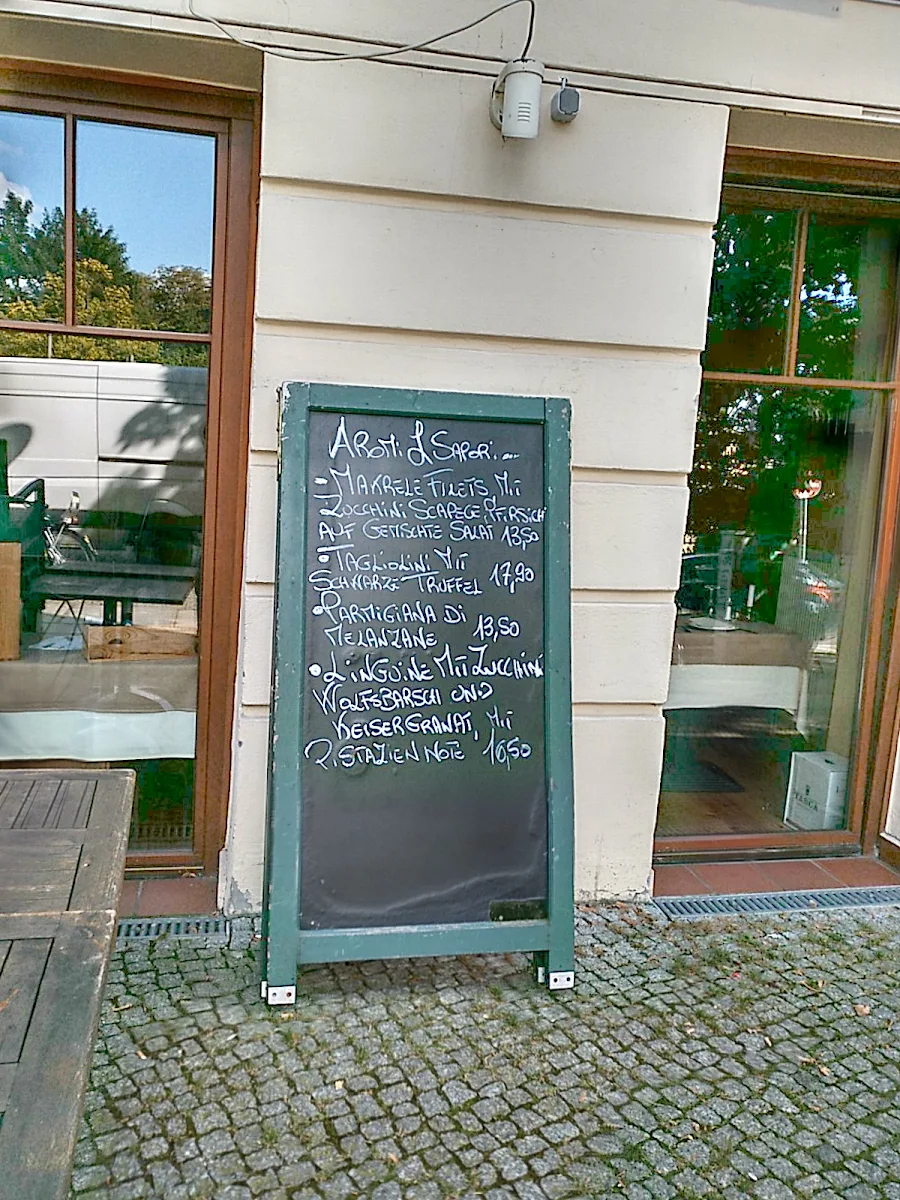 AROMI & SAPORI...
• MAKRELE FILETS MIT
ZUCCHINI SCAPECE PFIRSICH
AUF GEMISCHTE SALAT 13,50
• TAGLIOLINI MIT
SCHWARZE TRUFFEL 17,90
• PARMIGIANA DI
MELANZANE 13,50
• LINGUINE MIT ZUCCHINI
WOLFSBARSCH UND
KEISERGRANAT, MIT
PISTAZIEN NOTE 16,50